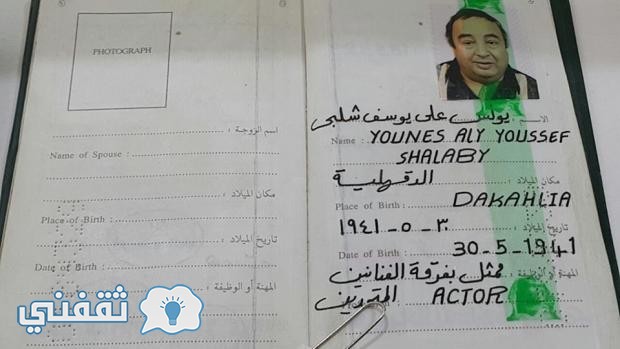 PHOTOGRAPH
اسم الزوجة :
Name of Spouse :
مكان الميلاد :
Place of Birth :
تاريخ الميلاد :
Date of Birth :
المهنة أو الوظيفة :
ثقفني
يونس على يوسف شلبى
الاسم :
Name : YOUNES ALY YOUSSEF
SHALABY
مكان الميلاد : الدقهلية
Place of Birth : DAKAHLIA
تاريخ الميلاد : ١٩٤١ - ٥ - ٣٠
Date of Birth : 30-5-1941
المهنة أو الوظيفة : ممثل بفرقة الفنانين
المتحدين ACTOR